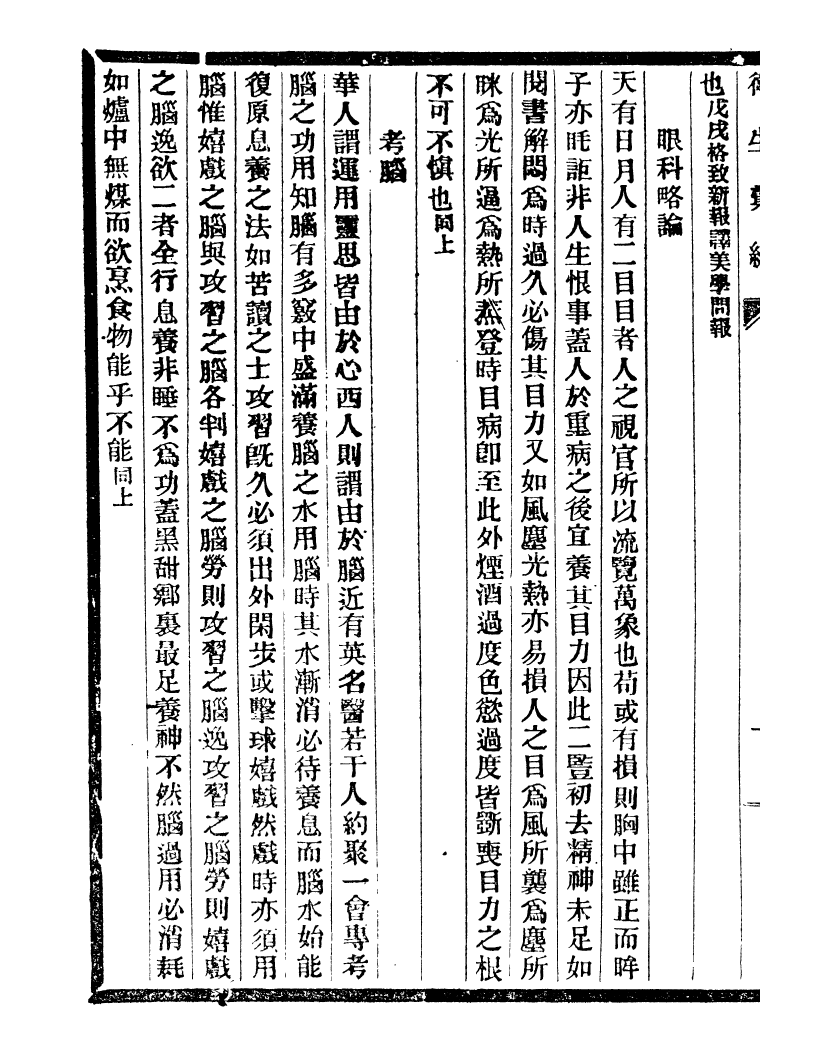 衛生彙編
也戊戌格致新報譯美學問報
眼科略論
天有日月人有二目目者人之視官所以流覽萬象也苟或有損則胸中雖正而眸
子亦眊詎非人生恨事蓋人於重病之後宜養其目力因此二豎初去精神未足如
閱書解悶爲時過久必傷其目力又如風塵光熱亦易損人之目爲風所襲爲塵所
眯爲光所逼爲熱所蒸登時目病卽至此外煙酒過度色慾過度皆斵喪目力之根
不可不愼也同上
考腦
華人謂運用靈思皆由於心西人則謂由於腦近有英名醫若干人約聚一會專考
腦之功用知腦有多竅中盛滿養腦之水用腦時其水漸消必待養息而腦水始能
復原息養之法如苦讀之士攻習旣久必須出外閑步或擊球嬉戲然戲時亦須用
腦惟嬉戲之腦與攻習之腦各判嬉戲之腦勞則攻習之腦逸攻習之腦勞則嬉戲
之腦逸欲二者全行息養非睡不爲功蓋黑甜鄕裏最足養神不然腦過用必消耗
如爐中無煤而欲烹食物能乎不能同上